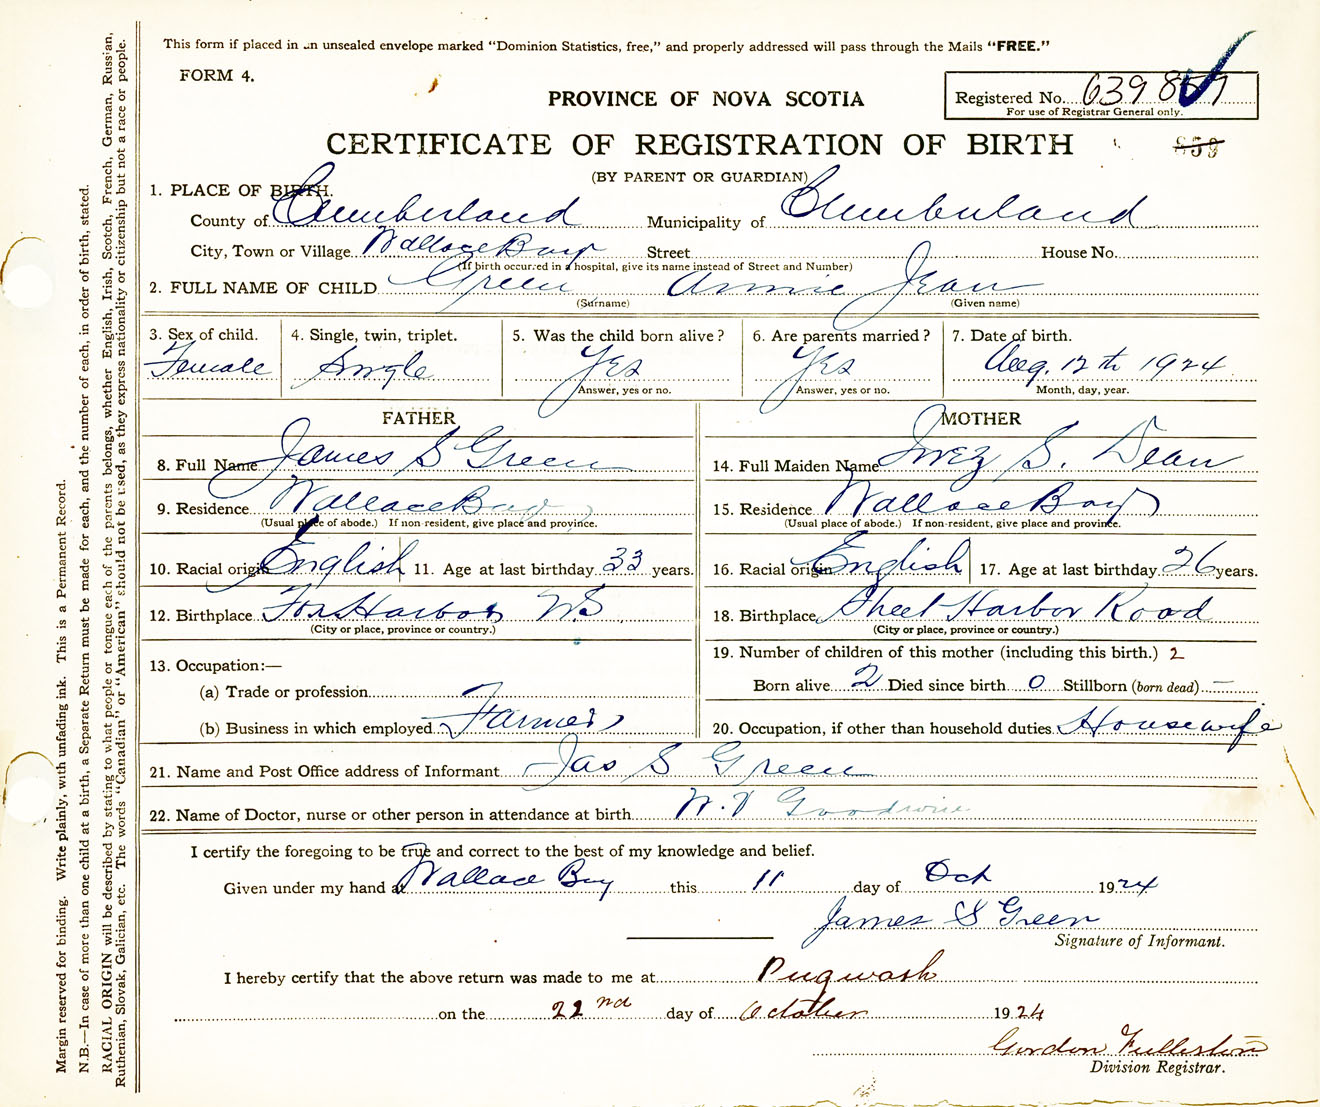 This form if placed in an unsealed envelope marked "Dominion Statistics, free," and properly addressed will pass through the Mails "FREE."
FORM 4.
PROVINCE OF NOVA SCOTIA
Registered No. 639857
For use of Registrar General only.
CERTIFICATE OF REGISTRATION OF BIRTH
859
(BY PARENT OR GUARDIAN)
1. PLACE OF BIRTH.
County of Cumberland Municipality of Cumberland
City, Town or Village Wallace Bay Street House No.
(If birth occurred in a hospital, give its name instead of Street and Number)
2. FULL NAME OF CHILD Green Annie Jean
(Surname) (Given name)
3. Sex of child. 4. Single, twin, triplet. 5. Was the child born alive? 6. Are parents married? 7. Date of birth.
Female Single Yes Yes Aug. 12th 1924
Answer, yes or no. Answer, yes or no. Month, day, year.
FATHER MOTHER
8. Full Name James S Green 14. Full Maiden Name Inez S. Dean
9. Residence Wallace Bay 15. Residence Wallace Bay
(Usual place of abode.) If non-resident, give place and province. (Usual place of abode.) If non-resident, give place and province.
10. Racial origin English 11. Age at last birthday 33 years. 16. Racial origin English 17. Age at last birthday 26 years.
12. Birthplace Fox Harbor N.S 18. Birthplace Sheet Harbor Road
(City or place, province or country.) (City or place, province or country.)
13. Occupation:— 19. Number of children of this mother (including this birth.) 2
(a) Trade or profession Born alive 2 Died since birth 0 Stillborn (born dead) —
(b) Business in which employed Farmer 20. Occupation, if other than household duties Housewife
21. Name and Post Office address of Informant Jas S Green
22. Name of Doctor, nurse or other person in attendance at birth Goodwin
I certify the foregoing to be true and correct to the best of my knowledge and belief.
Given under my hand at Wallace Bay this 11 day of Oct 1924
James S Green
Signature of Informant.
I hereby certify that the above return was made to me at Pugwash
on the 22nd day of October 1924
Gordon Fullerton
Division Registrar.
Margin reserved for binding. Write plainly, with unfading ink. This is a Permanent Record.
N.B.—In case of more than one child at a birth, a Separate Return must be made for each, and the number of each, in order of birth, stated.
RACIAL ORIGIN will be described by stating to what people or tongue each of the parents belongs, whether English, Irish, Scotch, French, German, Russian,
Ruthenian, Slovak, Galician, etc. The words "Canadian" or "American" should not be used, as they express nationality or citizenship but not a race or people.